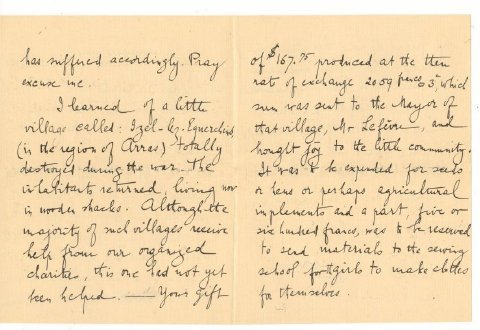 has suffered accordingly. Pray
excuse me.
I learned of a little
village called: Izel-lez-Equerchin,
(in the region of Arras) totally
destroyed during the war. The
inhabitants returned, living now
in wooden shacks. Although the
majority of such villages receive
help from our organized
charities, this one had not yet
been helped. Your gift
of $167.75 produced at the then
rate of exchange 2059 francs 35, which
sum was sent to the Mayor of
that village, Mr Lefèvre, and
brought joy to the little community.
It was to be expended for seeds
or hens or perhaps agricultural
implements and a part, five or
six hundred francs, was to be reserved
to send materials to the sewing
school for girls to make clothes
for themselves.